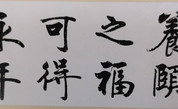 養頤
之福
可得
永年